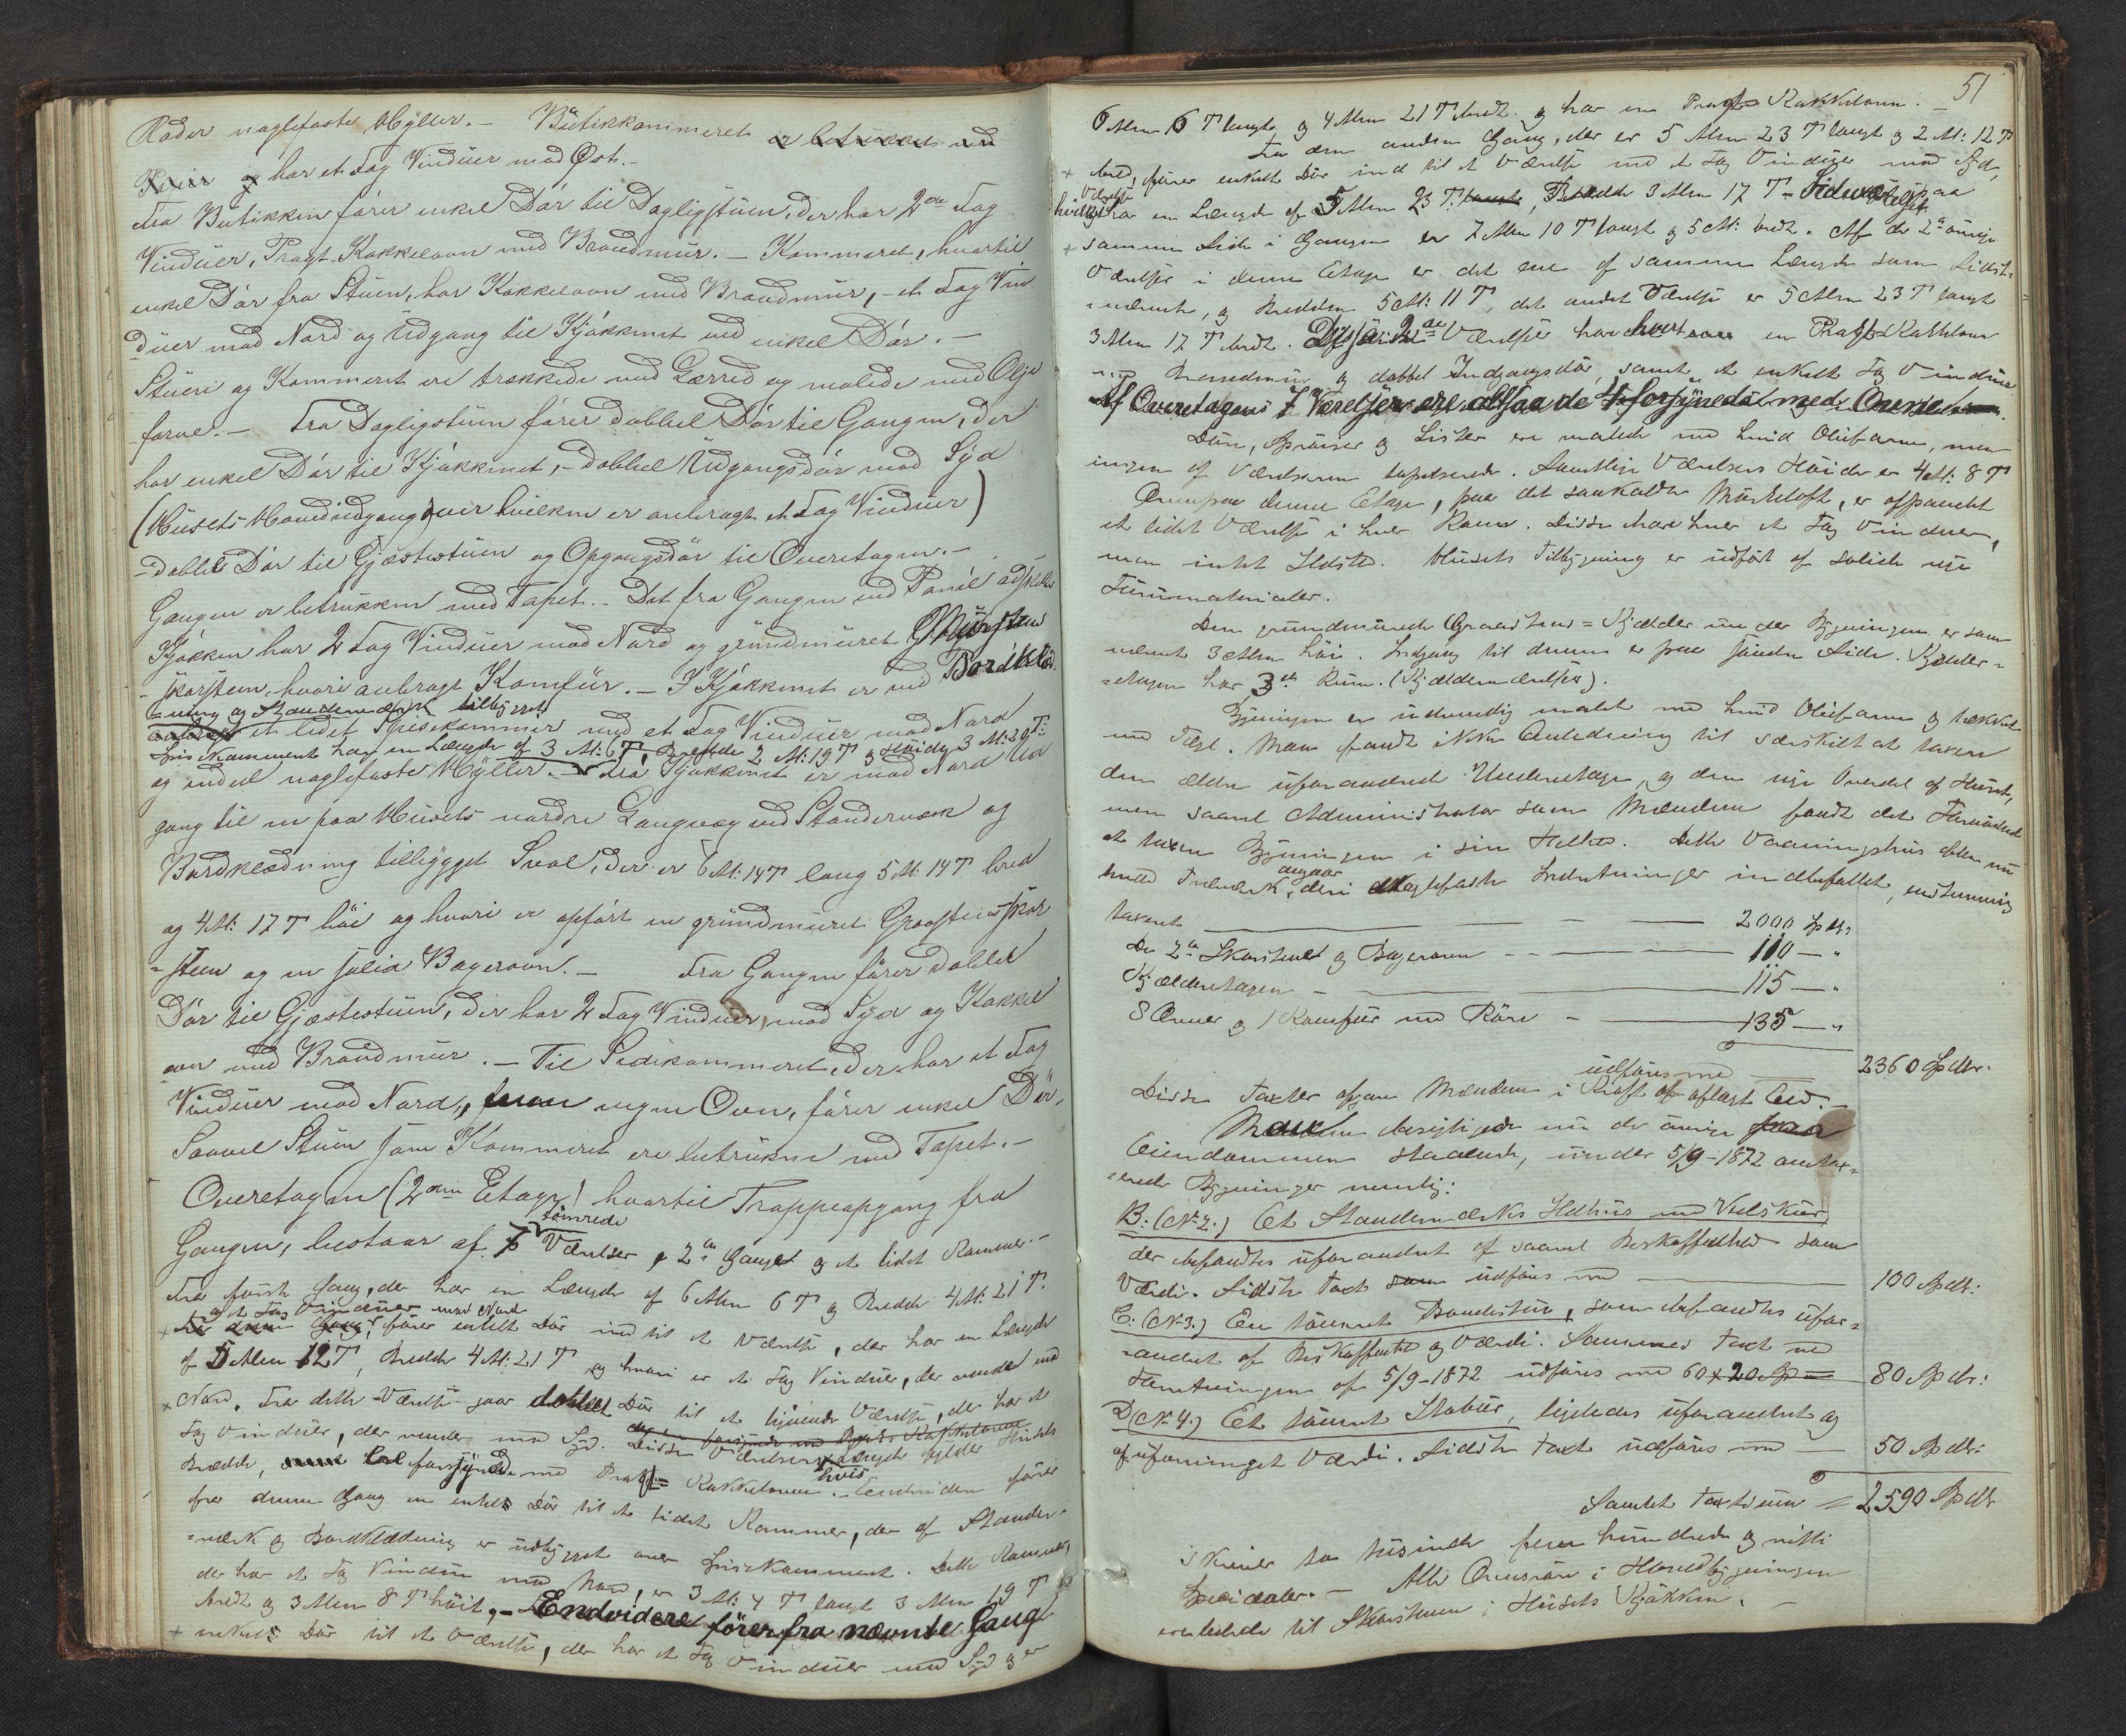 Rader naglefaste Hyller. – Butikkammeret er betrukket med
Papir og har et Fag Vinduer mod Øst. –
Fra Butikken fører enkel Dør til Dagligstuen, der har 2de Fag
Vinduer, Pragt-Kakkelovn med Brandmur. – Kammeret, hvortil
enkel Dør fra Stuen, har Kakkelovn med Brandmur, – et Fag Vin
duer mod Nord og Udgang til Kjøkkenet ved enkel Dør. –
Stuen og Kammeret ere trækkede med Lærred og malede med Olje
farve. – Fra Dagligstuen fører dobbel Dør til Gangen, der
har enkel Dør til Kjøkkenet, – dobbel Udgangsdør mod Syd
(Husets Hovedudgang over hvilken er anbragt et Fag Vinduer)
– dobbel Dør til Gjæstestuen og Opgangsdør til Overetagen. –
Gangen er betrukken med Tapet. – Det fra Gangen ved Panel adskilte
Kjøkken har 2 Fag Vinduer mod Nord og grundmuret Mursten
skorsten, hvori anbragt Komfur. – I Kjøkkenet er ved Bordklæd
=ning og Standerværk tilbygget
et lidet Spisekammer med et Fag Vinduer mod Nord
Spiskammeret har en Længde af 3 Al: 6 T, Bredde 2 Al: 19 T og Høide 3 Al: 20 T:
og endel naglefaste Hyller. – Fra Kjøkkenet er mod Nord Ud
gang til en paa Husets nordre Langvæg ved Standerværk og
Bordklædning tilbygget Sval, der er 6 Al: 14 T lang 5 Al: 14 T bred
og 4 Al: 17 T høi og hvori er opført en grundmuret Graastensskor
=sten og en solid Bagerovn. – Fra Gangen fører dobbel
Dør til Gjæstestuen, der har 2 Fag Vinduer mod Syd og Kakkel
ovn med Brandmur. – Til Sidekammeret, der har et Fag
Vinduer mod Nord, men ingen Ovn, fører enkel Dør.
Saavel Stuen som Kammeret ere betrukne med Tapet. –
Overetagen (2den Etage) hvortil Trappeopgang fra
tømrede
Gangen, bestaar af 7 Værelser, 2de Gange og et lidet Kammer. –
Fra første Gang, der har en Længde af 6 Alen 6 T og Bredde 4 Al: 21 T.
og et Fag Vinduer mod Nord
fører enkelt Dør ind til et Værelse, der har en Længde
af 5 Alen 12 T, Bredde 4 Al: 21 T og hvori er et Fag Vinduer, der vender mod
Nord. Fra dette Værelse gaar dobbelt Dør til et lignende Værelse, der har et
Fag Vinduer, der vender mod Syd. Disse Værelser, hvis Længde fylder Husets
Bredde, ere forsynede med Pragt=Kakkelovne. – Endvidere fører
fra denne Gang en enkelt Dør til et lidet Kammer, der af Stander=
=værk og Bordklædning er udbygget over Spiskammeret. Dette Kammer,
der har et Fag Vinduer mod Nord, er 3 Al: 4 T langt 3 Alen 19 T
bredt og 3 Alen 8 T høit. – Endvidere fører fra nævnte Gang
enkelt Dør til et Værelse, der har et Fag Vinduer mod Syd og er
51
6 Alen 6 T langt og 4 Alen 21 T bredt og har en Pragt-Kakkelovn. –
Fra den anden Gang, der er 5 Alen 23 T langt og 2 Al: 12 T
bred, fører enkelt Dør ind til et Værelse med et Fag Vinduer mod Syd,
hvilket Værelse har en Længde af 5 Alen 23 T. Bredde 3 Alen 17 T – Sideværelset paa
samme Side i Gangen er 7 Alen 10 T langt og 5 Al: bredt. Af de 2de øvrige
Værelser i denne Etage er det ene af samme Længde som sidst=
=nævnte, og Bredden 5 Al: 11 T, det andet Værelse er 5 Alen 23 T langt
3 Alen 17 T bredt. Disse 2de Værelser har hvert en Pragt-Kakkelovn
med Brandmur og dobbel Indgangsdør, samt et enkelt Fag Vinduer
Af Overetagens 7 Værelser ere altsaa de 4 forsynede med Ovne.
Døre, Sprosser og Lister ere malede med hvid Oliefarve, men
ingen af Værelserne tapetserede. Samtlige Værelsers Høide er 4 Al: 8 T
Ovenpaa denne Etage, paa det saakaldte Mørkeloft, er afpanelet
et lidet Værelse i hver Røst. Disse have hver et Fag Vinduer,
men intet Ildsted. Husets Tilbygning er udført af solide nye
Furumaterialer.
Den grundmurede Graastens=Kjælder under Bygningen er som
nævnt 3 Alen høi. Indgang til denne er paa søndre Side. Kjælder=
=etagen har 3de Rum. (Kjælderværelser).
Bygningen er udvendig malet med hvid Oliefarve og tækket
med Tegl. Man fandt ikke Anledning til særskilt at taxere
den ældre uforandrede Underetage, og den nye Overdel af Huset,
men saavel Administrator som Mændene fandt det
at taxere Bygningen i sin Helhed. Dette Vaaningshus blev nu
hvad Træværk angaar, deri naglefaste Indretninger indbefattet, enstemmig
taxeret – 2000 Spdlr:
De 2de Skorstene og Bagerovn – 110 – "
Kjælderetagen – 115 – "
8 Ovne og 1 Komfur med Rør – 135 – "
udføres med 2360 Spdlr.
Disse Taxter afgave Mændene i Kraft af aflagt Eed. –
Mændene besigtigede nu de øvrige paa
Eiendommen staaende, under 5/9-1872 omtax=
=erede Bygninger nemlig:
B: (No 2.) Et Standerværks Ildhus med Vedskur,
der befandtes uforandret af saavel Beskaffenhed som
Værdi. Sidste Taxt udføres med – 100 Spdlr:
C: (No 3.) En tømret Borgestue, som befandtes ufor=
=andret af Beskaffenhed og Værdi. Sammes Taxt ved
Forretningen af 5/9-1872 udføres med 60 + 20 Sp = 80 Spdlr:
D (No 4.) Et tømret Stabur, ligeledes uforandret og
af uforringet Værdi. Sidste Taxt udføres med – 50 Spdlr:
Samlet Taxtsum = 2590 Spdlr
skriver to tusinde fem hundrede og nitti
Speciedaler. – Alle Ovnsrør i Hovedbygningen
ere ledede til Skorstenen i Husets Kjøkken. –